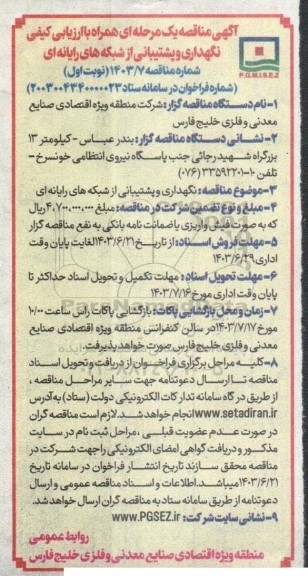 آگهی مناقصه یک مرحله ای همراه با ارزیابی کیفی
نگهداری و پشتیبانی از شبکه های رایانه ای
شماره مناقصه ۱۴۰۳/۷ (نوبت اول)
(شماره فراخوان در سامانه ستاد ۲۰۰۳۰۰۴۳۴۰۰۰۰۰۲۳)
P.G.M.I.S.E.Z
۱- نام دستگاه مناقصه گزار: شرکت منطقه ویژه اقتصادی صنایع
معدنی و فلزی خلیج فارس
۲- نشانی دستگاه مناقصه گزار: بندر عباس - کیلومتر ۱۳
بزرگراه شهید رجائی جنب پاسگاه نیروی انتظامی خونسرخ -
تلفن ۱۰-۳۳۵۹۲۲۰۱ (۰۷۶)
۳- موضوع مناقصه: نگهداری و پشتیبانی از شبکه های رایانه ای
۴- مبلغ و نوع تضمین شرکت در مناقصه: مبلغ ۴,۷۰۰,۰۰۰,۰۰۰ ریال
که به صورت فیش واریزی یا ضمانت نامه بانکی به نفع مناقصه گزار
۵- مهلت فروش اسناد: از تاریخ ۱۴۰۳/۶/۲۱ لغایت پایان وقت
اداری ۱۴۰۳/۶/۲۹
۶- مهلت تحویل اسناد: مهلت تکمیل و تحویل اسناد حداکثر تا
پایان وقت اداری مورخ ۱۴۰۳/۷/۱۶
۷- زمان و محل بازگشایی پاکات: بازگشایی پاکات راس ساعت ۱۰/۰۰
مورخ ۱۴۰۳/۷/۱۷ در سالن کنفرانس منطقه ویژه اقتصادی صنایع
معدنی و فلزی خلیج فارس صورت خواهد پذیرفت.
۸- کلیه مراحل برگزاری فراخوان از دریافت و تحویل اسناد
مناقصه تا ارسال دعوتنامه جهت سایر مراحل مناقصه ،
از طریق درگاه سامانه تدارکات الکترونیکی دولت (ستاد) به آدرس
www.setadiran.ir انجام خواهد شد. لازم است مناقصه گران
در صورت عدم عضویت قبلی ، مراحل ثبت نام در سایت
مذکور و دریافت گواهی امضای الکترونیکی را جهت شرکت در
مناقصه محقق سازند تاریخ انتشار فراخوان در سامانه تاریخ
۱۴۰۳/۶/۲۱ میباشد. اطلاعات و اسناد مناقصه عمومی و ارسال
دعوتنامه از طریق سامانه ستاد به مناقصه گران ارسال خواهد شد.
۹- نشانی سایت شرکت: www.PGSEZ.ir
روابط عمومی
منطقه ویژه اقتصادی صنایع معدنی و فلزی خلیج فارس